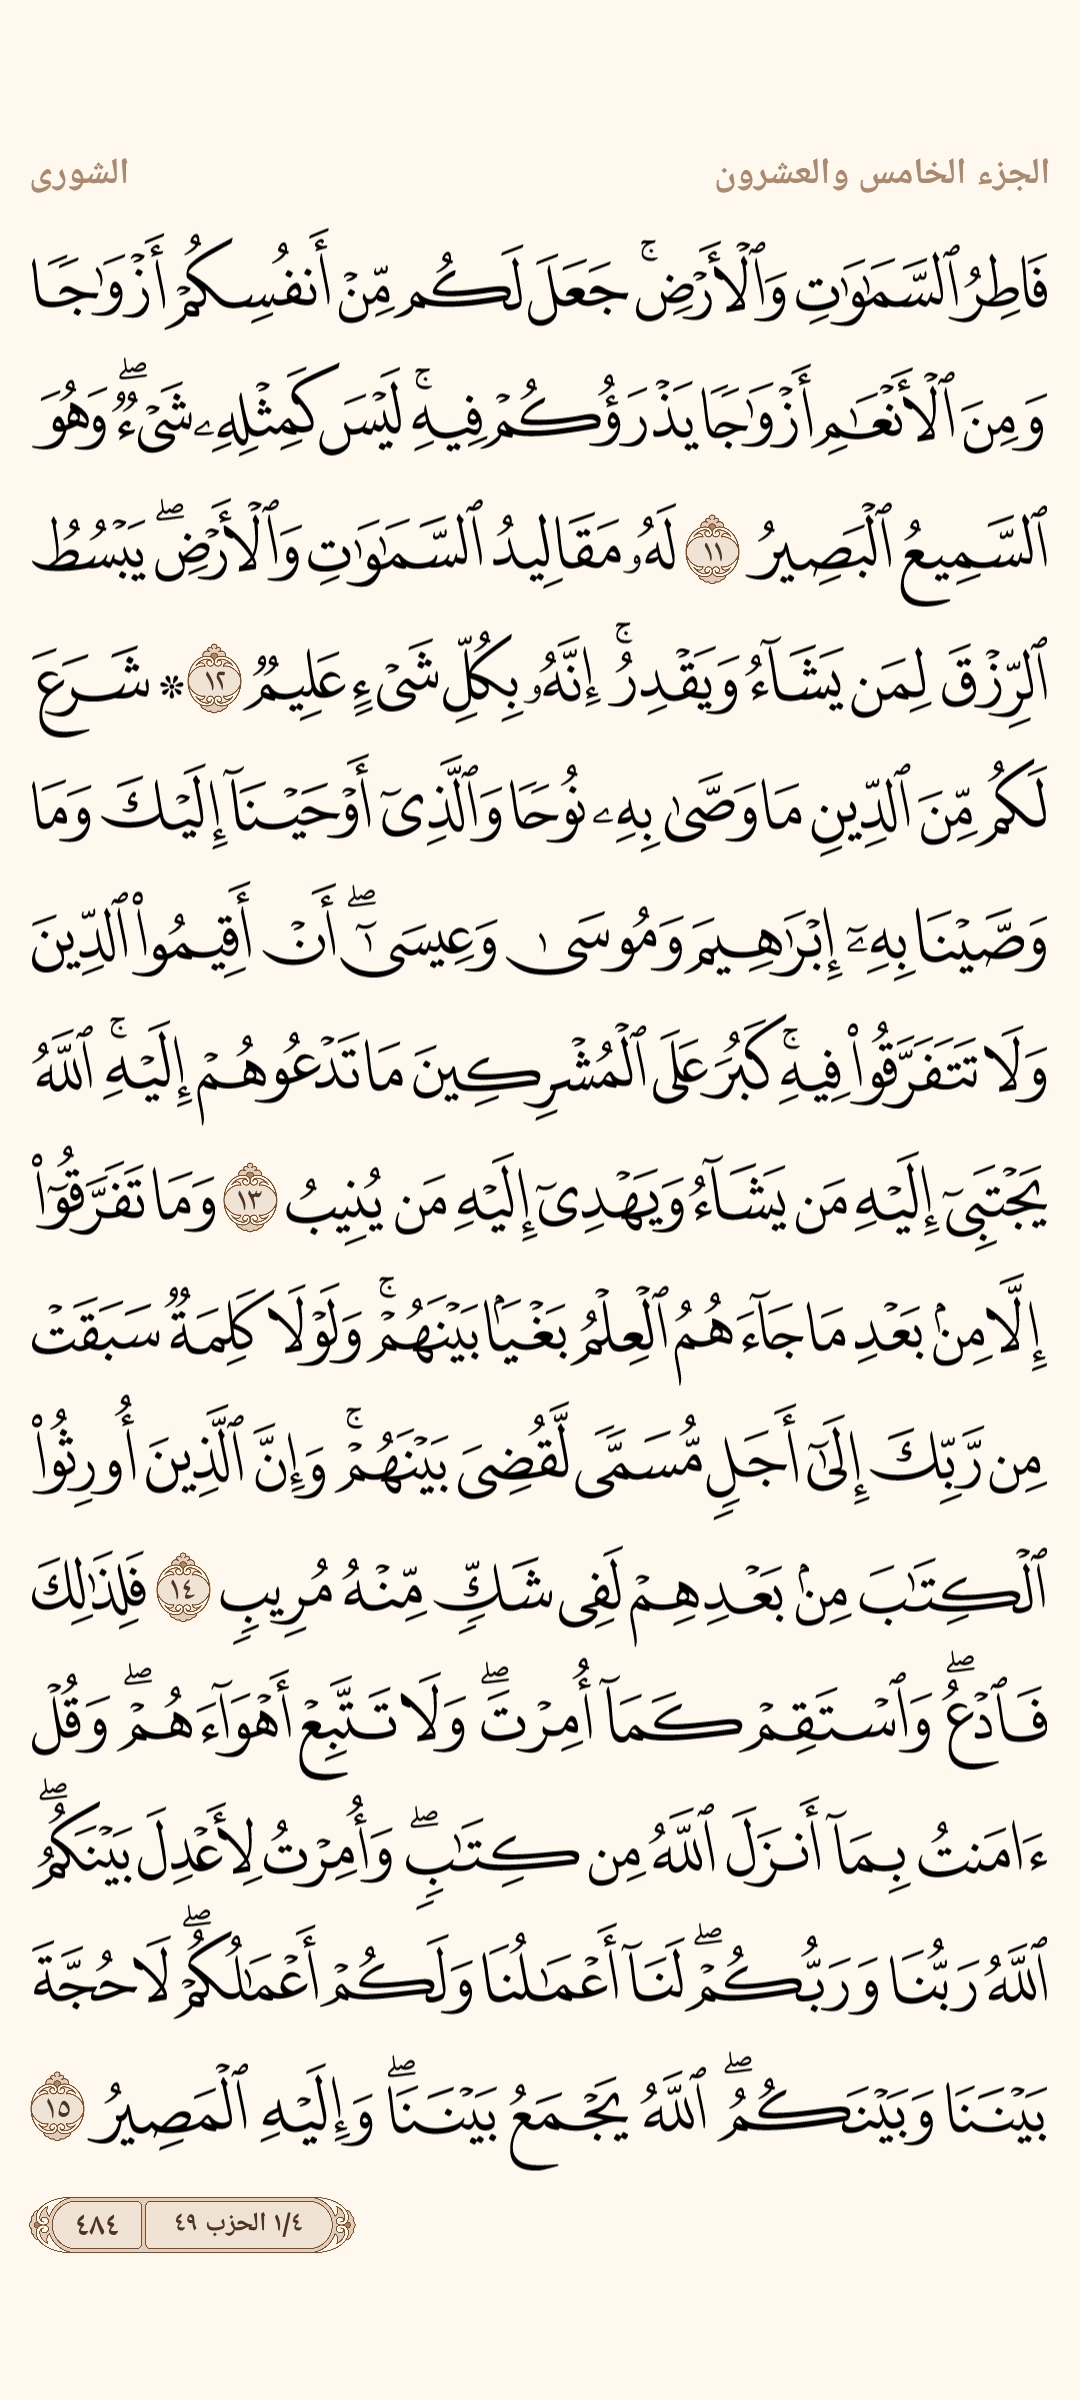 الجزء الخامس والعشرون الشورى
فَاطِرُ ٱلسَّمَٰوَٰتِ وَٱلْأَرْضِۚ جَعَلَ لَكُم مِّنْ أَنفُسِكُمْ أَزْوَٰجًا
وَمِنَ ٱلْأَنْعَٰمِ أَزْوَٰجًا يَذْرَؤُكُمْ فِيهِۚ لَيْسَ كَمِثْلِهِۦ شَىْءٌۖ وَهُوَ
ٱلسَّمِيعُ ٱلْبَصِيرُ ١١ لَهُۥ مَقَالِيدُ ٱلسَّمَٰوَٰتِ وَٱلْأَرْضِۖ يَبْسُطُ
ٱلرِّزْقَ لِمَن يَشَآءُ وَيَقْدِرُۚ إِنَّهُۥ بِكُلِّ شَىْءٍ عَلِيمٌ ١٢ * شَرَعَ
لَكُم مِّنَ ٱلدِّينِ مَا وَصَّىٰ بِهِۦ نُوحًا وَٱلَّذِىٓ أَوْحَيْنَآ إِلَيْكَ وَمَا
وَصَّيْنَا بِهِۦٓ إِبْرَٰهِيمَ وَمُوسَىٰ وَعِيسَىٰٓۖ أَنْ أَقِيمُوا۟ ٱلدِّينَ
وَلَا تَتَفَرَّقُوا۟ فِيهِۚ كَبُرَ عَلَى ٱلْمُشْرِكِينَ مَا تَدْعُوهُمْ إِلَيْهِۚ ٱللَّهُ
يَجْتَبِىٓ إِلَيْهِ مَن يَشَآءُ وَيَهْدِىٓ إِلَيْهِ مَن يُنِيبُ ١٣ وَمَا تَفَرَّقُوٓا۟
إِلَّا مِنۢ بَعْدِ مَا جَآءَهُمُ ٱلْعِلْمُ بَغْيًۢا بَيْنَهُمْۚ وَلَوْلَا كَلِمَةٌ سَبَقَتْ
مِن رَّبِّكَ إِلَىٰٓ أَجَلٍ مُّسَمًّى لَّقُضِىَ بَيْنَهُمْۚ وَإِنَّ ٱلَّذِينَ أُورِثُوا۟
ٱلْكِتَٰبَ مِنۢ بَعْدِهِمْ لَفِى شَكٍّ مِّنْهُ مُرِيبٍ ١٤ فَلِذَٰلِكَ
فَٱدْعُۖ وَٱسْتَقِمْ كَمَآ أُمِرْتَۖ وَلَا تَتَّبِعْ أَهْوَآءَهُمْۖ وَقُلْ
ءَامَنتُ بِمَآ أَنزَلَ ٱللَّهُ مِن كِتَٰبٍۖ وَأُمِرْتُ لِأَعْدِلَ بَيْنَكُمُۖ
ٱللَّهُ رَبُّنَا وَرَبُّكُمْۖ لَنَآ أَعْمَٰلُنَا وَلَكُمْ أَعْمَٰلُكُمْۖ لَا حُجَّةَ
بَيْنَنَا وَبَيْنَكُمُۖ ٱللَّهُ يَجْمَعُ بَيْنَنَاۖ وَإِلَيْهِ ٱلْمَصِيرُ ١٥
١/٤ الحزب ٤٩ ٤٨٤